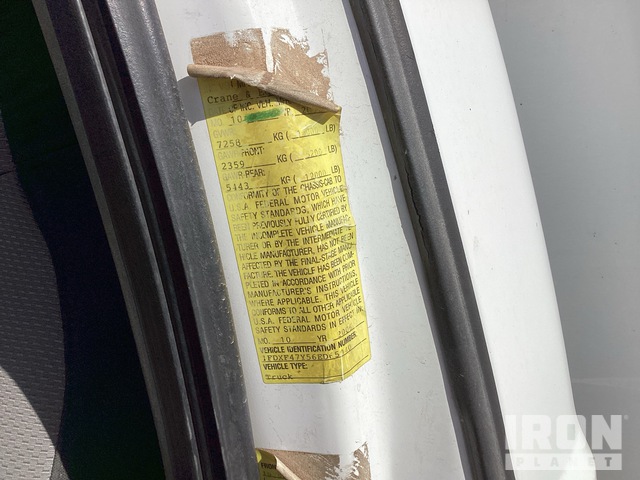 Crane &
OF INC. VEH.
MO. 10
GVWR
7258 KG ( LB)
GAWR FRONT:
2359 KG ( LB)
GAWR REAR:
5443 KG ( LB)
CONFORMITY OF THE CHASSIS-CAB TO
U.S.A. FEDERAL MOTOR VEHICLE
SAFETY STANDARDS, WHICH HAVE
BEEN PREVIOUSLY FULLY CERTIFIED BY
THE INCOMPLETE VEHICLE MANUFAC-
TURER OR BY THE INTERMEDIATE VE-
HICLE MANUFACTURER, HAS NOT BEEN
AFFECTED BY THE FINAL-STAGE MANU-
FACTURE. THE VEHICLE HAS BEEN COM-
PLETED IN ACCORDANCE WITH PRIOR
MANUFACTURER'S INSTRUCTIONS,
WHERE APPLICABLE. THIS VEHICLE
CONFORMS TO ALL OTHER APPLICABLE
U.S.A. FEDERAL MOTOR VEHICLE
SAFETY STANDARDS IN EFFECT IN
MO. 10 YR
VEHICLE IDENTIFICATION NUMBER:
VEHICLE TYPE:
Truck
IRON
PLANET